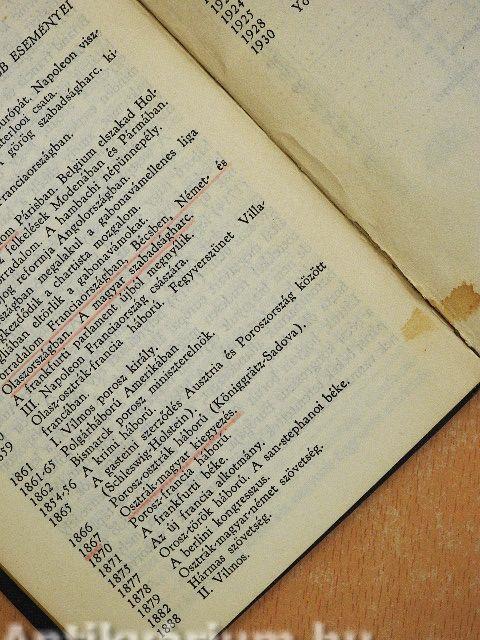 BB ESEMÉNYEI
urópát. Napoleon visz-
terlooi csata.
A görög szabadságharc. ki
Franciaországban.
om Párisban. Belgium elszakad Hol-
felkelések Modenában és Pármában.
orradalom. A hambachi népünnepély.
jog reformja Angolországban.
szágban megalakul a gabonavámellenes liga
gkezdődik a chartista mozgalom.
gliában eltörlik a gabonavámokat.
orradalom Franciaországban, Bécsben, Német- és
Olaszországban. A magyar szabadságharc.
A frankfurti parlament újból megnyílik.
III. Napoleon Franciaország császára.
Olasz-osztrák-francia háború. Fegyverszünet Villa-
francában.
I. Vilmos porosz király.
1861 Polgárháború Amerikában
1861-65 Bismarck porosz miniszterelnök.
1862 A krimi háború.
1854-56 A gasteini szerződés Ausztria és Poroszország között
1865 (Schleswig-Holstein).
1866 Porosz-osztrák háború (Königgrätz-Sadova).
1867 Osztrák-magyar kiegyezés.
1870 Porosz-francia háború.
1871 A frankfurti béke.
1875 Az új francia alkotmány.
1877 Orosz-török háború. A sanstephanoi béke.
1878 A berlini kongresszus.
1879 Osztrák-magyar-német szövetség.
1882 Hármas szövetség.
II. Vilmos.
1924
1925
1928
1930